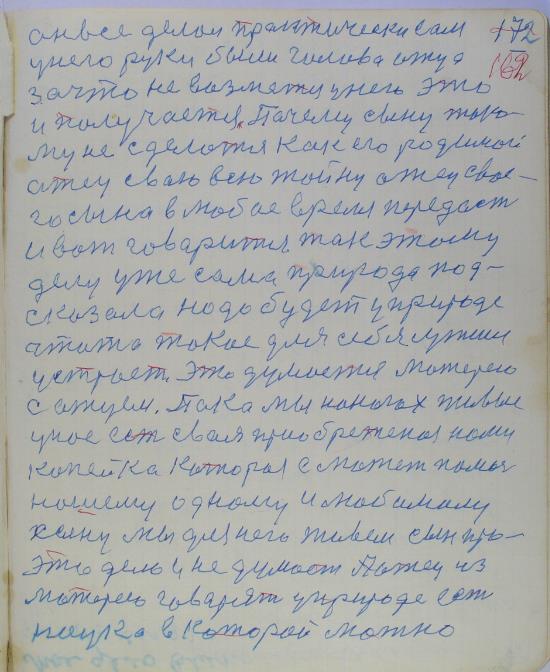 172
162
он все делол практически сам
у него руки были голова отца
за что не возметця у него это
и получается. Почему сыну тако-
му не сделотся как его родимой
отец сваю всю тойну отец свое-
го сына в любое время передаст
и вот говарится так этому
делу уже сама природа под-
сказала надо будет у природе
чтото такое для себя лутши
устроет. Это думоется матерею
с отцем. Пака мы на ногах живые
у нос ест своя приобретеноя нами
копейка каторая сможет помоч
нашему одному и любамому
сыну мы для него живем сын про-
это дело и не думоет А отец из
матерею говарят у природе ест
наука в каторой можно